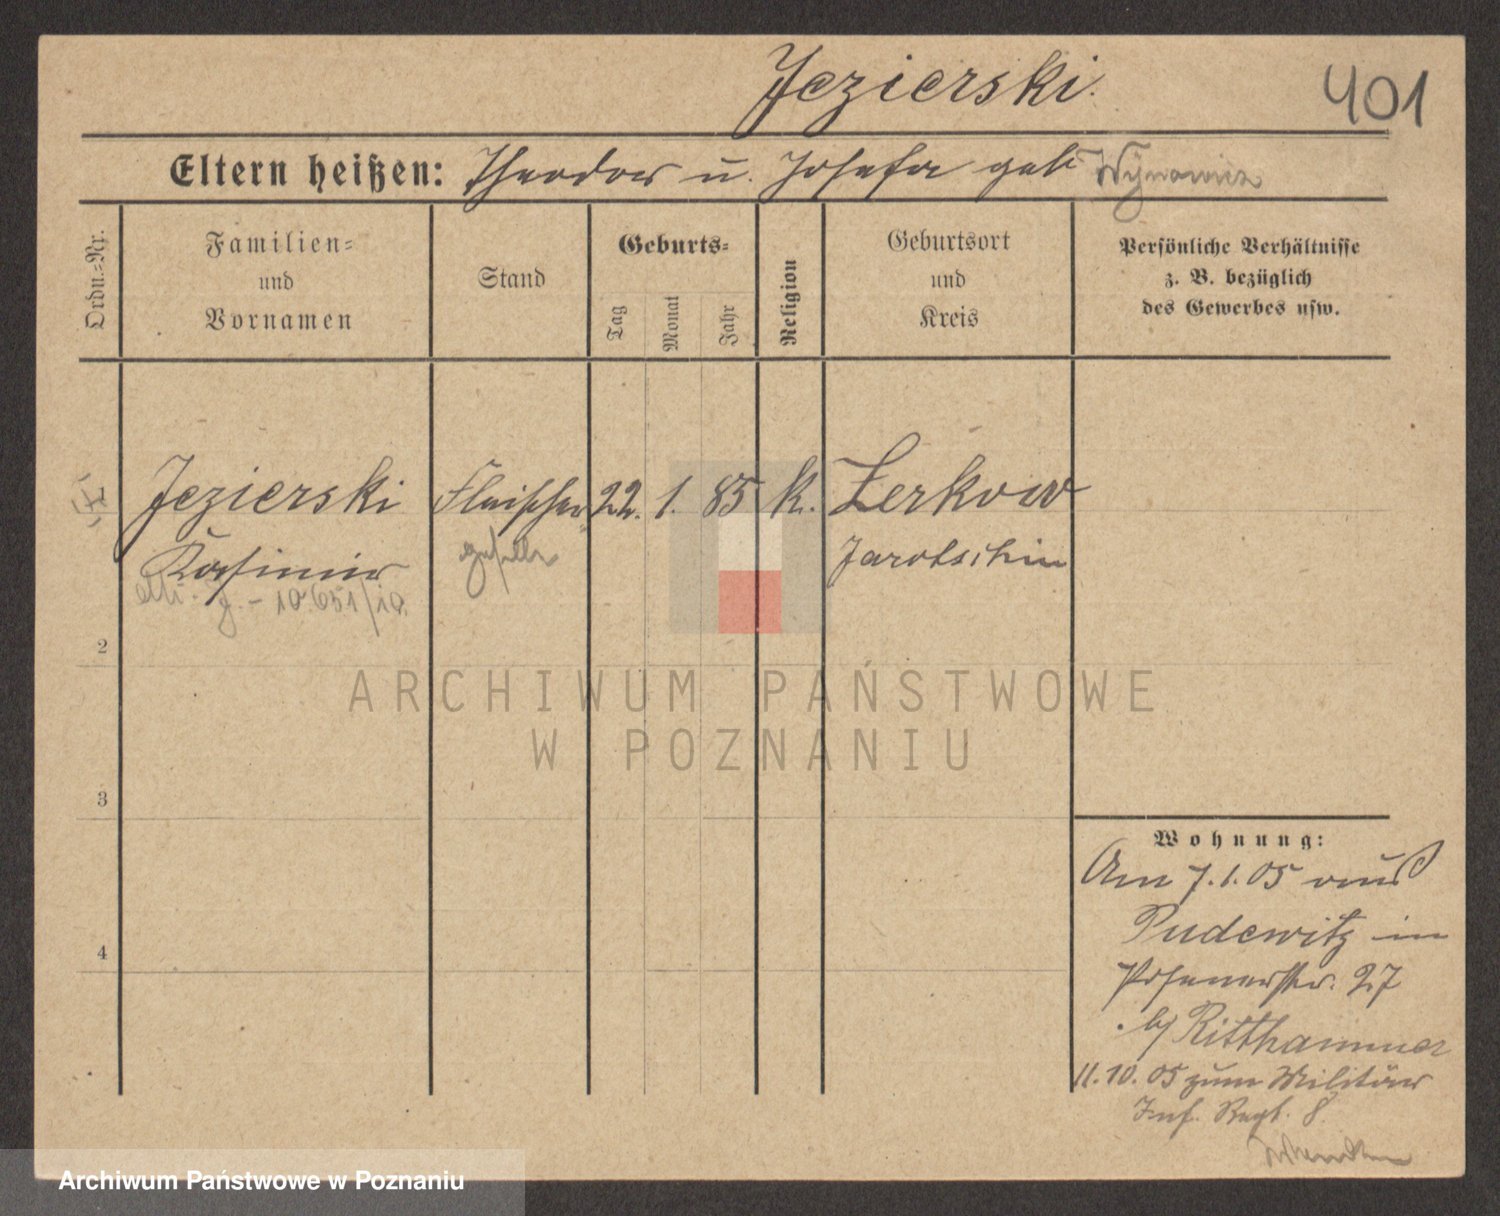 Jezierski.
401
Eltern heißen: Theodor u. Josefa geb
Ordn.=Nr.
Familien=
und
Vornamen
Stand
Geburts=
Tag
Monat
Jahr
Religion
Geburtsort
und
Kreis
Persönliche Verhältnisse
z. B. bezüglich
des Gewerbes usw.
Jezierski Fleischer 22. 1. 85 k. Zerkow
Kasimir geselle Jarotschin
10.651/10.
2
3
4
Wohnung:
Am 7.1.05 aus
Pudewitz in
Posenerstr. 27
b/ Ritthammer
11.10.05 zum Militär
Inf. Regt. 8.
ARCHIWUM PAŃSTWOWE
W POZNANIU
Archiwum Państwowe w Poznaniu